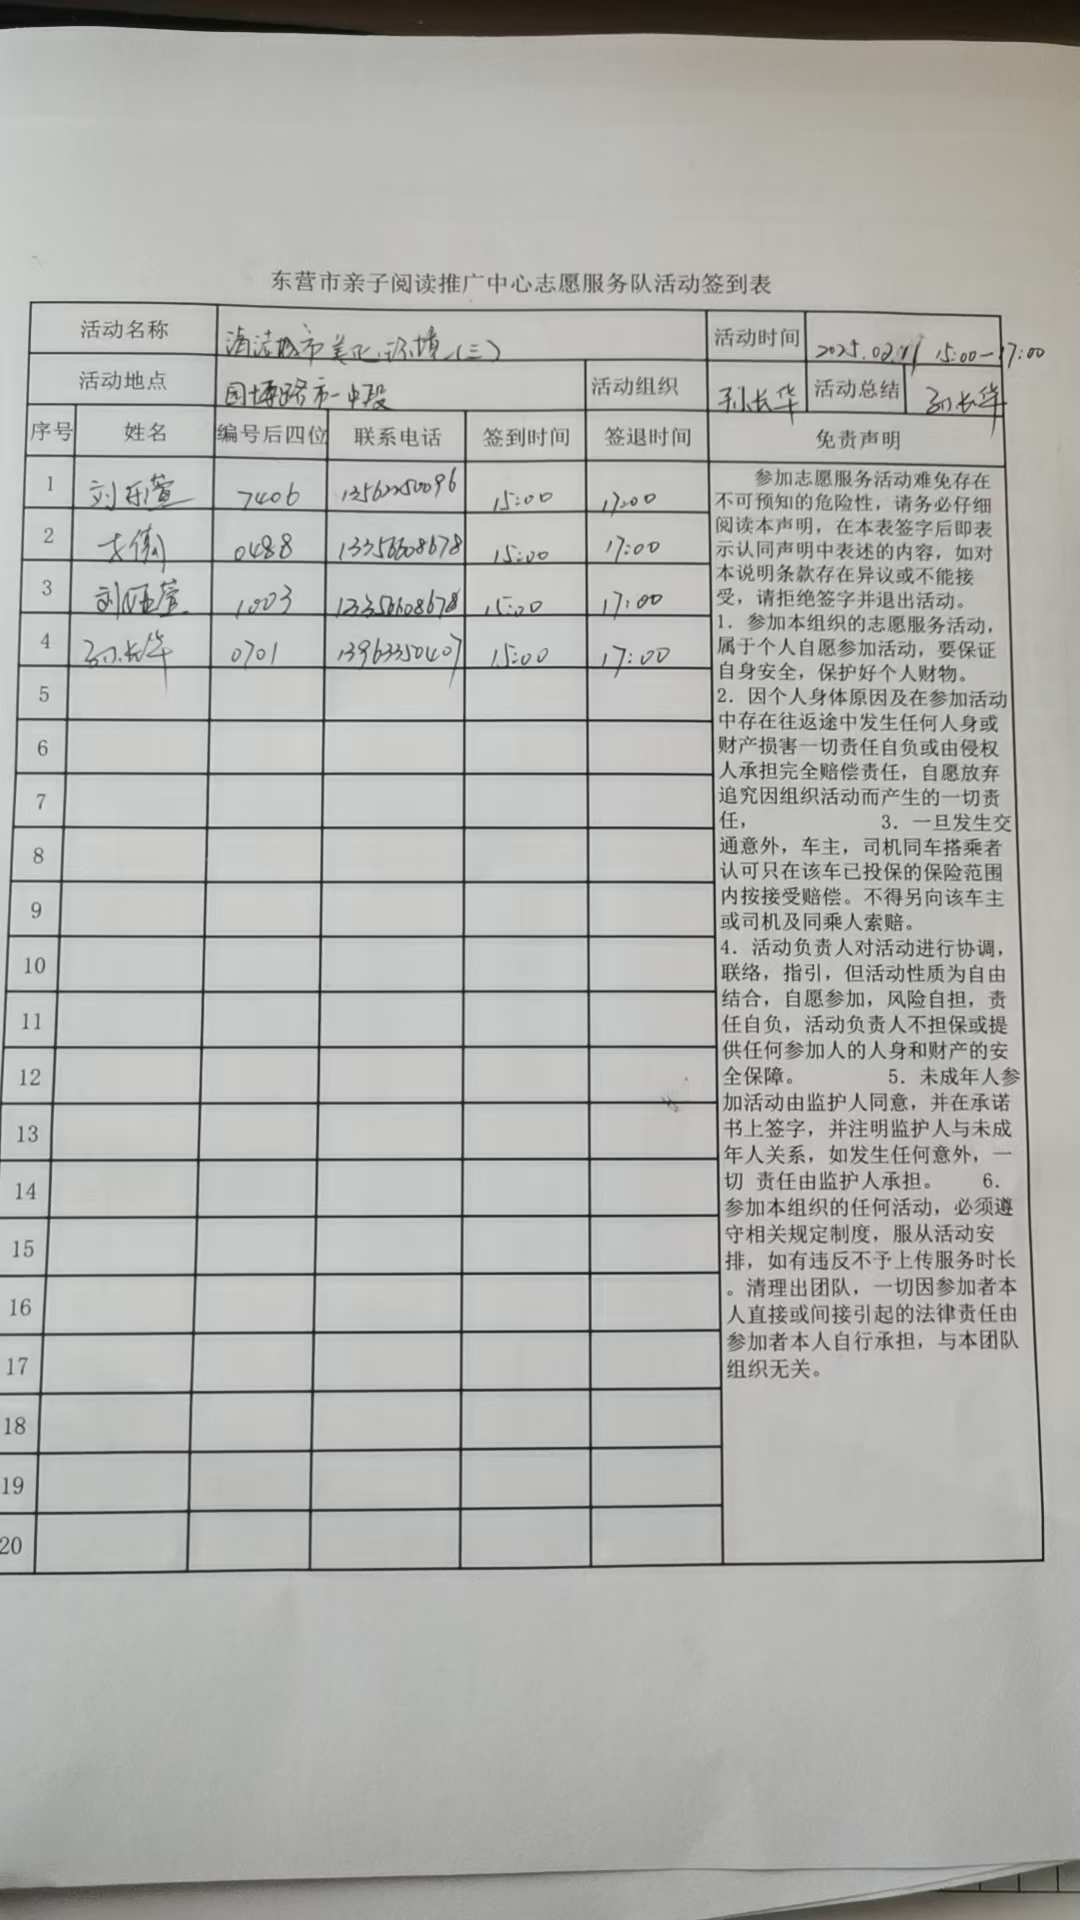 东营市亲子阅读推广中心志愿服务队活动签到表
活动名称 清洁城市美化环境(三) 活动时间 2025.02.11 15:00-17:00
活动地点 园博路市一中段 活动组织 孙长华 活动总结 孙长华
序号 姓名 编号后四位 联系电话 签到时间 签退时间 免责声明
1 刘乐萱 7406 13562250096 15:00 17:00
2 0488 13356608678 15:00 17:00
3 刘 萱 1003 13356608678 15:00 17:00
4 孙长华 0701 13963350407 15:00 17:00
5
6
7
8
9
10
11
12
13
14
15
16
17
18
19
20
参加志愿服务活动难免存在
不可预知的危险性，请务必仔细
阅读本声明，在本表签字后即表
示认同声明中表述的内容，如对
本说明条款存在异议或不能接
受，请拒绝签字并退出活动。
1．参加本组织的志愿服务活动，
属于个人自愿参加活动，要保证
自身安全，保护好个人财物。
2．因个人身体原因及在参加活动
中存在往返途中发生任何人身或
财产损害一切责任自负或由侵权
人承担完全赔偿责任，自愿放弃
追究因组织活动而产生的一切责
任， 3．一旦发生交
通意外，车主，司机同车搭乘者
认可只在该车已投保的保险范围
内按接受赔偿。不得另向该车主
或司机及同乘人索赔。
4．活动负责人对活动进行协调，
联络，指引，但活动性质为自由
结合，自愿参加，风险自担，责
任自负，活动负责人不担保或提
供任何参加人的人身和财产的安
全保障。 5．未成年人参
加活动由监护人同意，并在承诺
书上签字，并注明监护人与未成
年人关系，如发生任何意外，一
切 责任由监护人承担。 6．
参加本组织的任何活动，必须遵
守相关规定制度，服从活动安
排，如有违反不予上传服务时长
。清理出团队，一切因参加者本
人直接或间接引起的法律责任由
参加者本人自行承担，与本团队
组织无关。